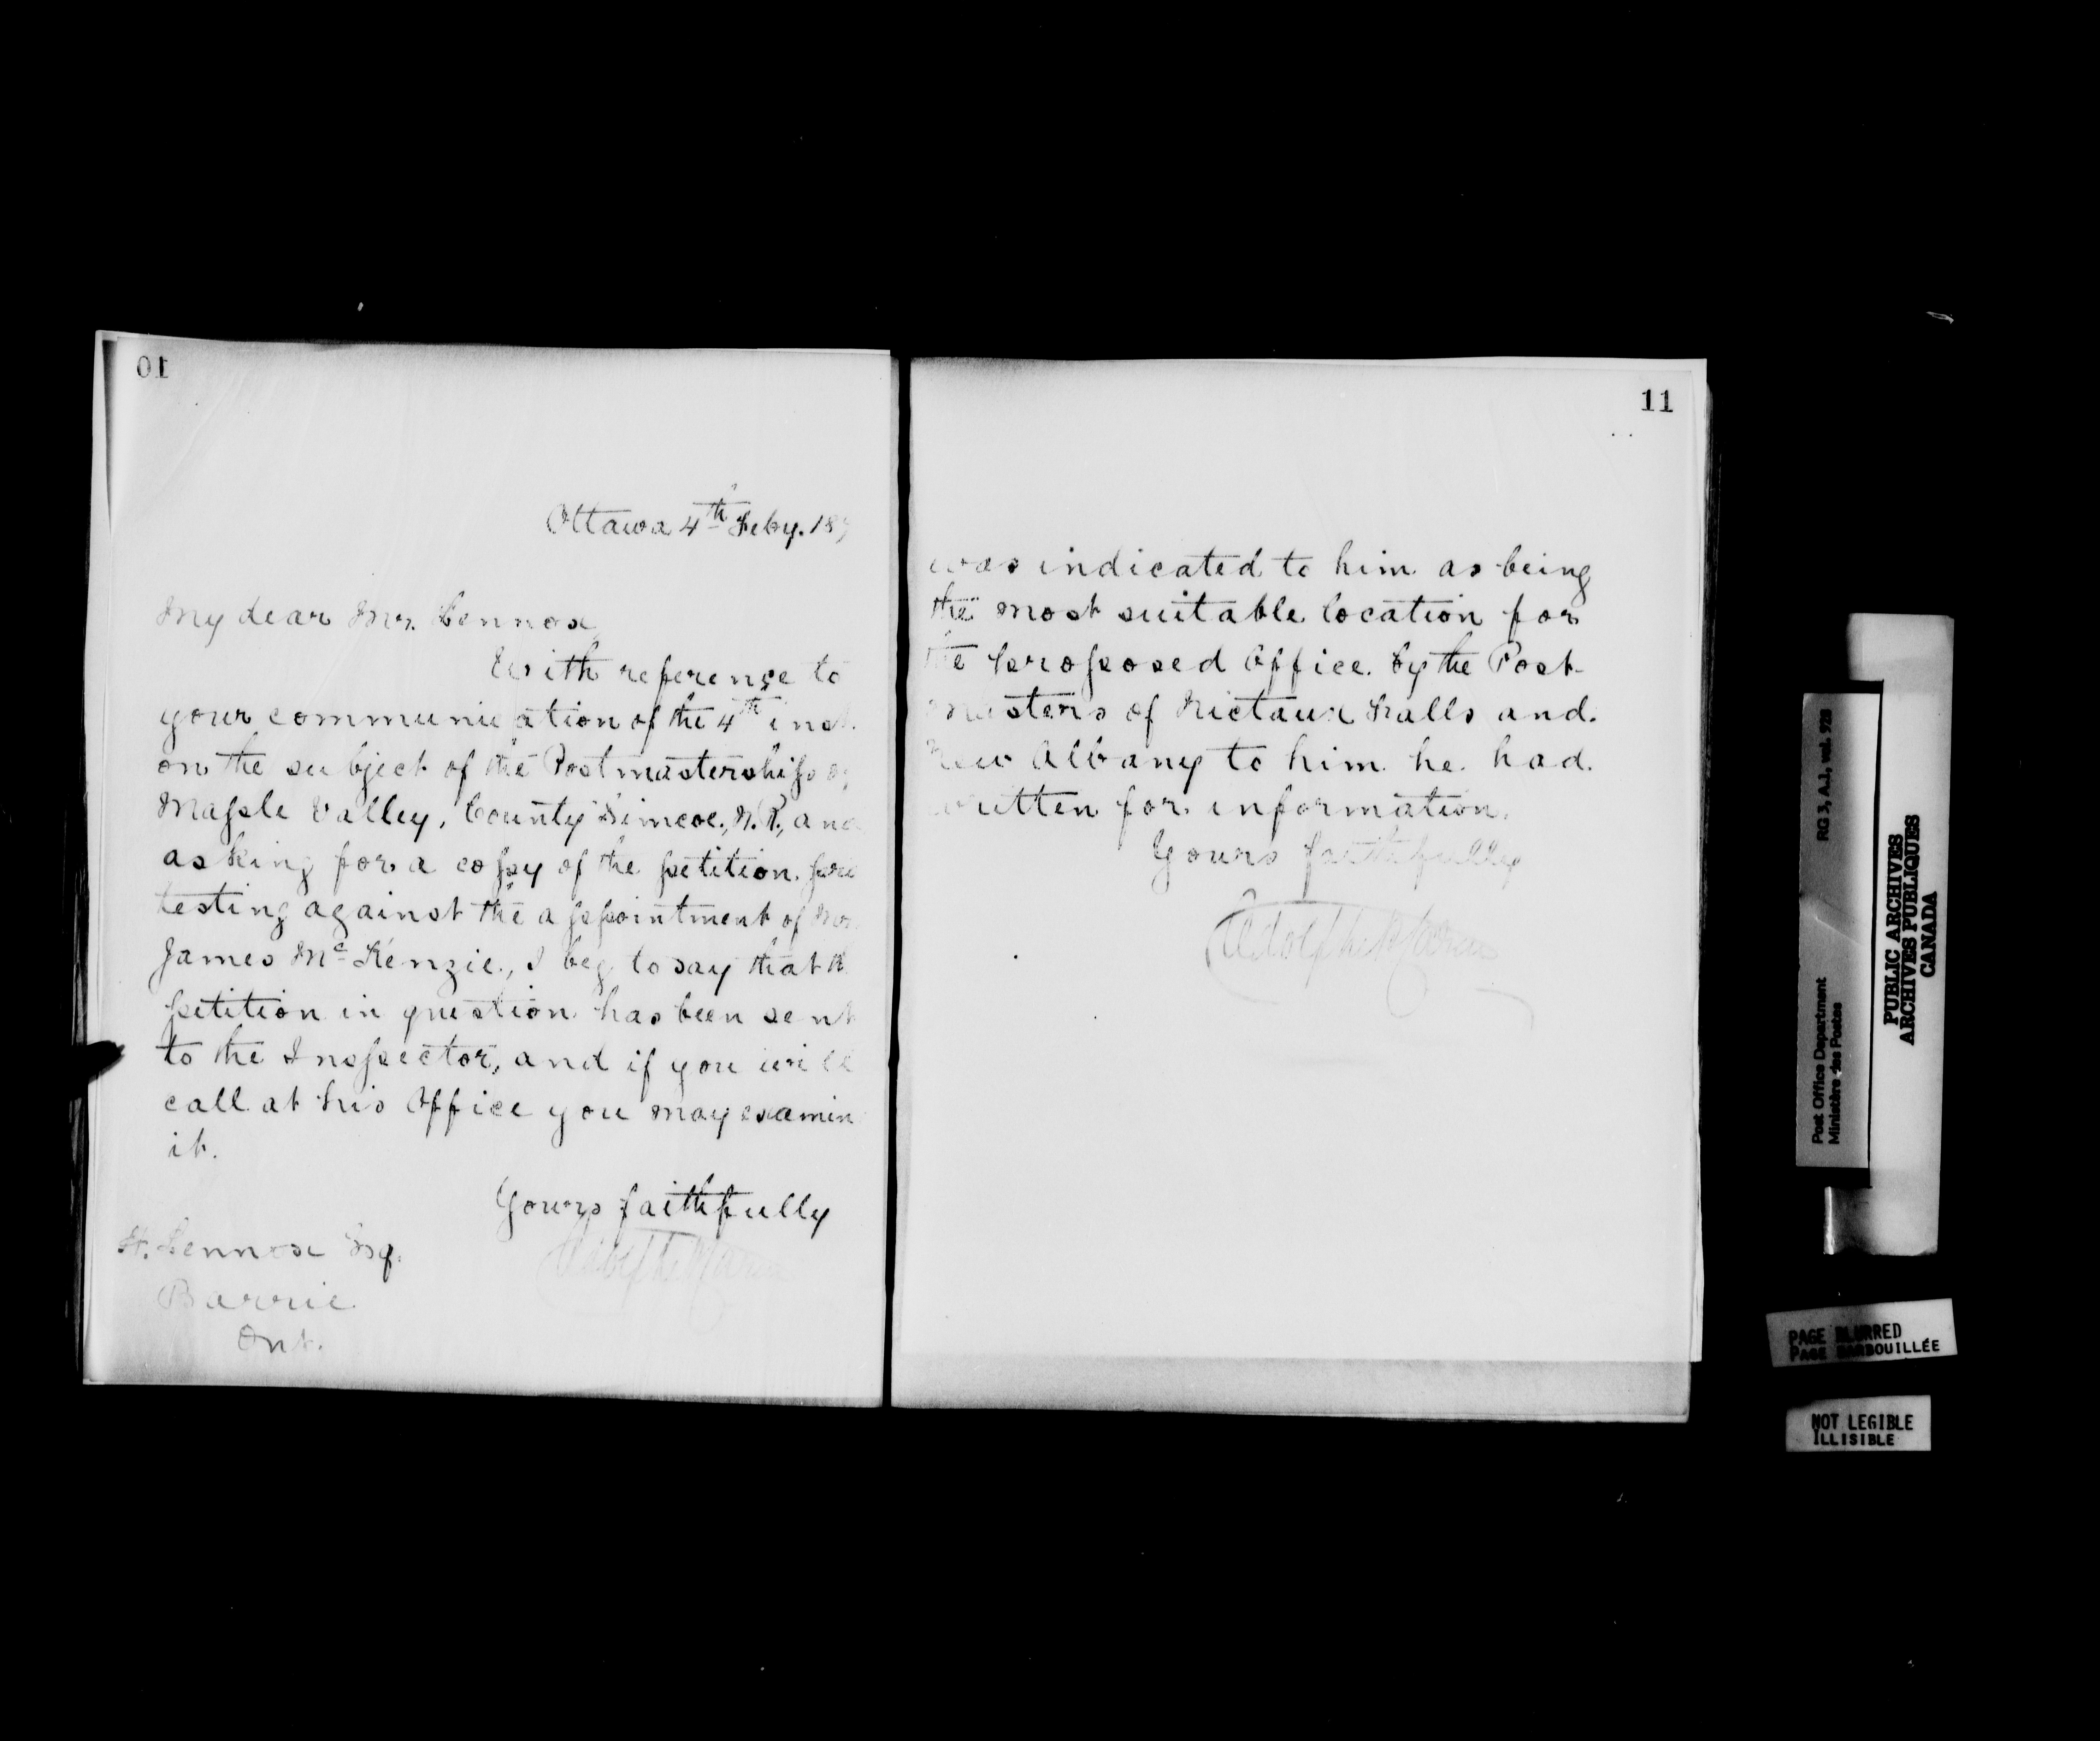 10
Ottawa 4th Feby. 189
My dear Mr. Lennox,
With reference to
your communication of the 4th inst.
on the subject of the Postmastership of
Maple Valley, County Simcoe, N.R., and
asking for a copy of the petition pro
testing against the appointment of Mr.
James McKenzie, I beg to say that th
petition in question has been sent
to the Inspector, and if you will
call at his Office you may examin
it.
Yours faithfully
Adolphe P. Caron
H. Lennox Esq.
Barrie
Ont.
11
was indicated to him as being
the most suitable location for
the proposed Office by the Post-
masters of Nictaux Falls and
New Albany to him he had
written for information.
Yours faithfully
Adolphe P. Caron
Post Office Department
Ministère des Postes
RG 3, A.1, vol. 928
PUBLIC ARCHIVES
ARCHIVES PUBLIQUES
CANADA
PAGE BLURRED
PAGE BARBOUILLÉE
NOT LEGIBLE
ILLISIBLE